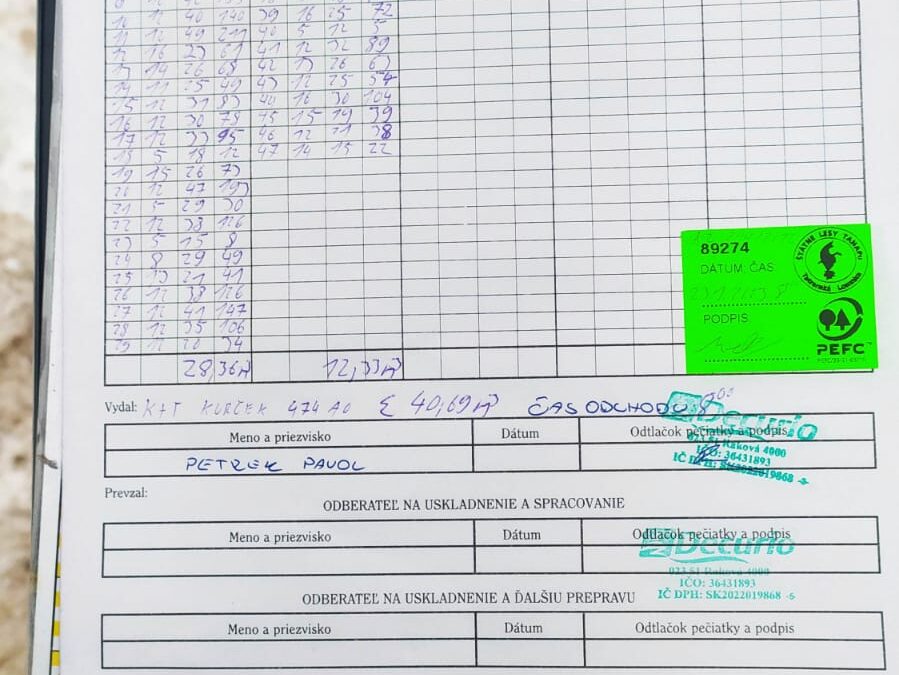 10 12 40 140 39 16 25 72
11 12 49 211 40 5 12 5
12 16 23 61 41 12 32 89
13 14 26 68 42 13 26 63
14 11 25 49 43 12 25 54
15 12 31 83 16 30 104
16 12 30 78 45 15 19 39
17 12 33 95 46 12 21 38
18 5 18 12 47 14 15 22
19 15 26 73
20 12 47 193
21 5 29 30
22 12 38 126
23 5 15 8
24 8 29 49
25 13 21 41
26 12 38 126
27 12 41 147
28 12 35 106
29 12 20 34
28,36 12,33
89274
DÁTUM, ČAS
PODPIS
ŠTÁTNE LESY TANAPU
Tatranská Lomnica
PEFC
Vydal: 474 AO Σ 40,69 ČAS ODCHODU 8 00
Meno a priezvisko Dátum Odtlačok pečiatky a podpis
Decurio
023 51 Raková 4000
IČO: 36431893
IČ DPH: SK2022019868 -5-
PETREK PAVOL
Prevzal:
ODBERATEĽ NA USKLADNENIE A SPRACOVANIE
Meno a priezvisko Dátum Odtlačok pečiatky a podpis
Decurio
023 51 Raková 4000
IČO: 36431893
IČ DPH: SK2022019868 -5-
ODBERATEĽ NA USKLADNENIE A ĎALŠIU PREPRAVU
Meno a priezvisko Dátum Odtlačok pečiatky a podpis